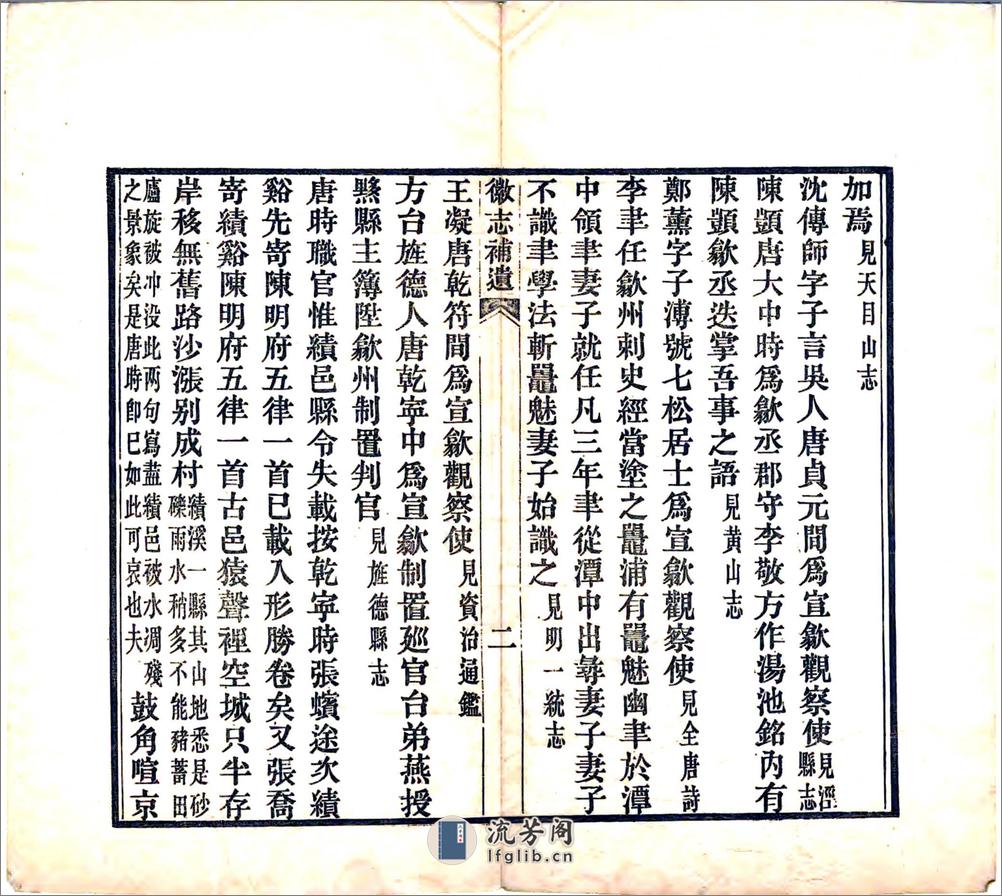 加焉見天目山志
沈傳師字子言吳人唐貞元間爲宣歙觀察使見涇縣志
陳顗唐大中時爲歙丞郡守李敬方作湯池銘內有
陳顗歙丞迭掌吾事之語見黄山志
鄭薰字子溥號七松居士爲宣歙觀察使見全唐詩
李聿任歙州刺史經當塗之鼉浦有鼉魅幽聿於潭
中領聿妻子就任凡三年聿從潭中出尋妻子妻子
不識聿學法斬鼉魅妻子始識之見明一統志
徽志補遺 二
王凝唐乾符間爲宣歙觀察使見資治通鑑
方台旌德人唐乾寧中爲宣歙制置廵官台弟燕授
黟縣主簿陞歙州制置判官見旌德縣志
唐時職官惟績邑縣令失載按乾寧時張蠙途次績
谿先寄陳明府五律一首已載入形勝卷矣又張喬
寄績谿陳明府五律一首古邑猿聲裡空城只半存
岸移無舊路沙漲别成村績溪一縣其山地悉是砂礫雨水稍多不能豬蓄田
廬旋被冲没此两句寫盡績邑被水凋殘之景象矣是唐時即已如此可哀也夫鼓角喧京
流芳阁
lfglib.cn